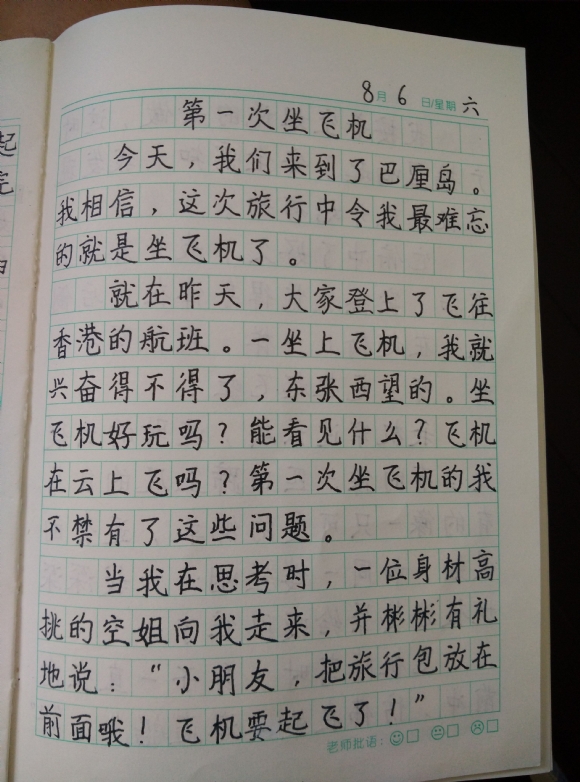 8月6日/星期六
第一次坐飞机
今天，我们来到了巴厘岛。
我相信，这次旅行中令我最难忘
的就是坐飞机了。
就在昨天，大家登上了飞往
香港的航班。一坐上飞机，我就
兴奋得不得了，东张西望的。坐
飞机好玩吗？能看见什么？飞机
在云上飞吗？第一次坐飞机的我
不禁有了这些问题。
当我在思考时，一位身材高
挑的空姐向我走来，并彬彬有礼
地说："小朋友，把旅行包放在
前面哦！飞机要起飞了！"
老师批语：
起
完